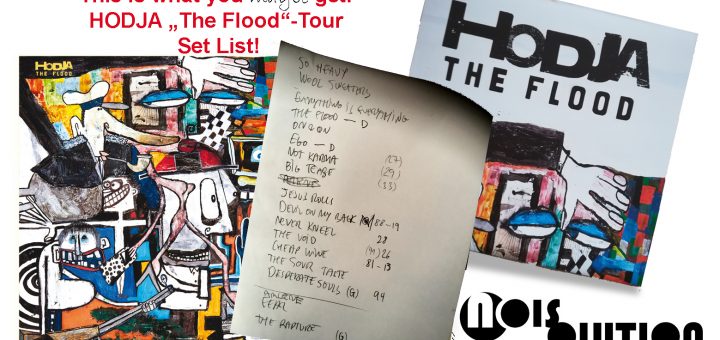 This is what you maybe get:
HODJA „The Flood“-Tour
Set List!
HODJA
THE FLOOD
SO HEAVY
WOOL SWEATERS
EVERYTHING IS EVERYTHING
THE FLOOD — D
ON & ON
EGO — D
NOT KARMA (27)
BIG TEASE (29)
(33)
JESUS ROLL
DEVIL ON MY BACK 88-19
NEVER KNEEL 28
THE VOID
CHEAP WINE 26
THE SOUR TASTE 81-13
DESPERATE SOULS (G) 94
THE RAPTURE (G)
HODJA
THE FLOOD